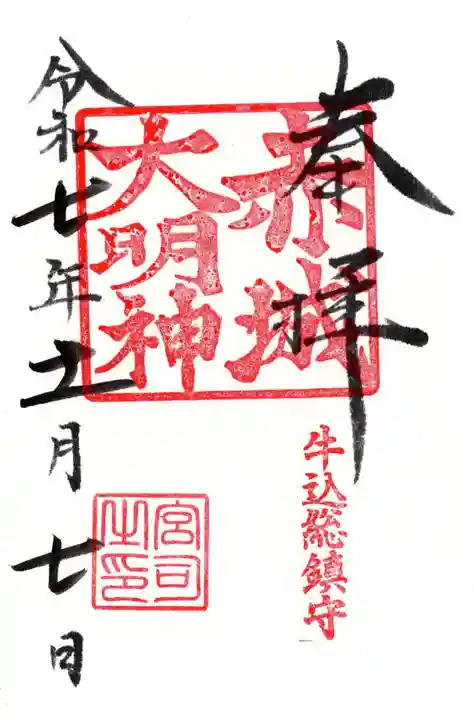 奉拝
赤城
大明神
牛込総鎮守
宮司
之印
令和七年十一月七日